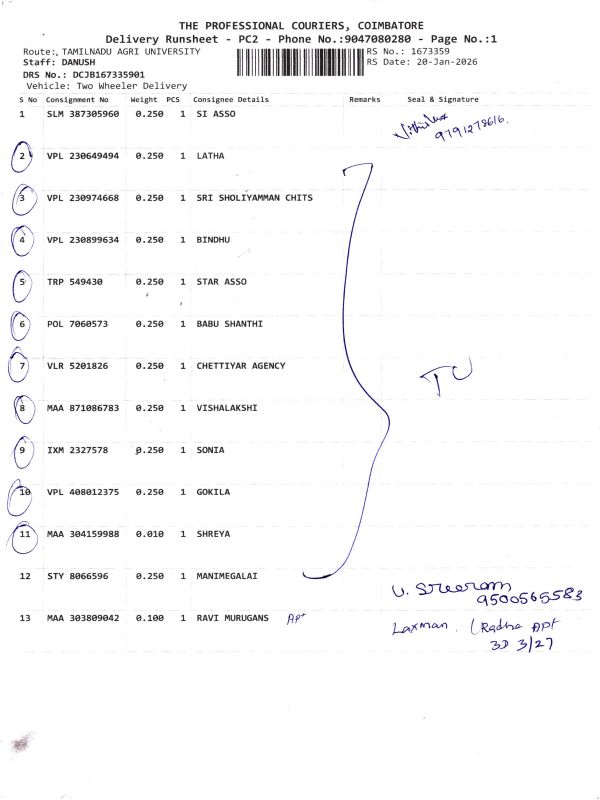 THE PROFESSIONAL COURIERS, COIMBATORE
Delivery Runsheet - PC2 - Phone No.:9047080280 - Page No.:1
Route:, TAMILNADU AGRI UNIVERSITY RS No.: 1673359
Staff: DANUSH RS Date: 20-Jan-2026
DRS No.: DCJB167335901
Vehicle: Two Wheeler Delivery
S No Consignment No Weight PCS Consignee Details Remarks Seal & Signature
1 SLM 387305960 0.250 1 SI ASSO
9791278616.
2 VPL 230649494 0.250 1 LATHA
3 VPL 230974668 0.250 1 SRI SHOLIYAMMAN CHITS
4 VPL 230899634 0.250 1 BINDHU
5 TRP 549430 0.250 1 STAR ASSO
6 POL 7060573 0.250 1 BABU SHANTHI
7 VLR 5201826 0.250 1 CHETTIYAR AGENCY
TU
8 MAA 871086783 0.250 1 VISHALAKSHI
9 IXM 2327578 0.250 1 SONIA
10 VPL 408012375 0.250 1 GOKILA
11 MAA 304159988 0.010 1 SHREYA
12 STY 8066596 0.250 1 MANIMEGALAI U. Sreeram
9500565583
13 MAA 303809042 0.100 1 RAVI MURUGANS Apt Laxman. (Radha APt
3D 3/27